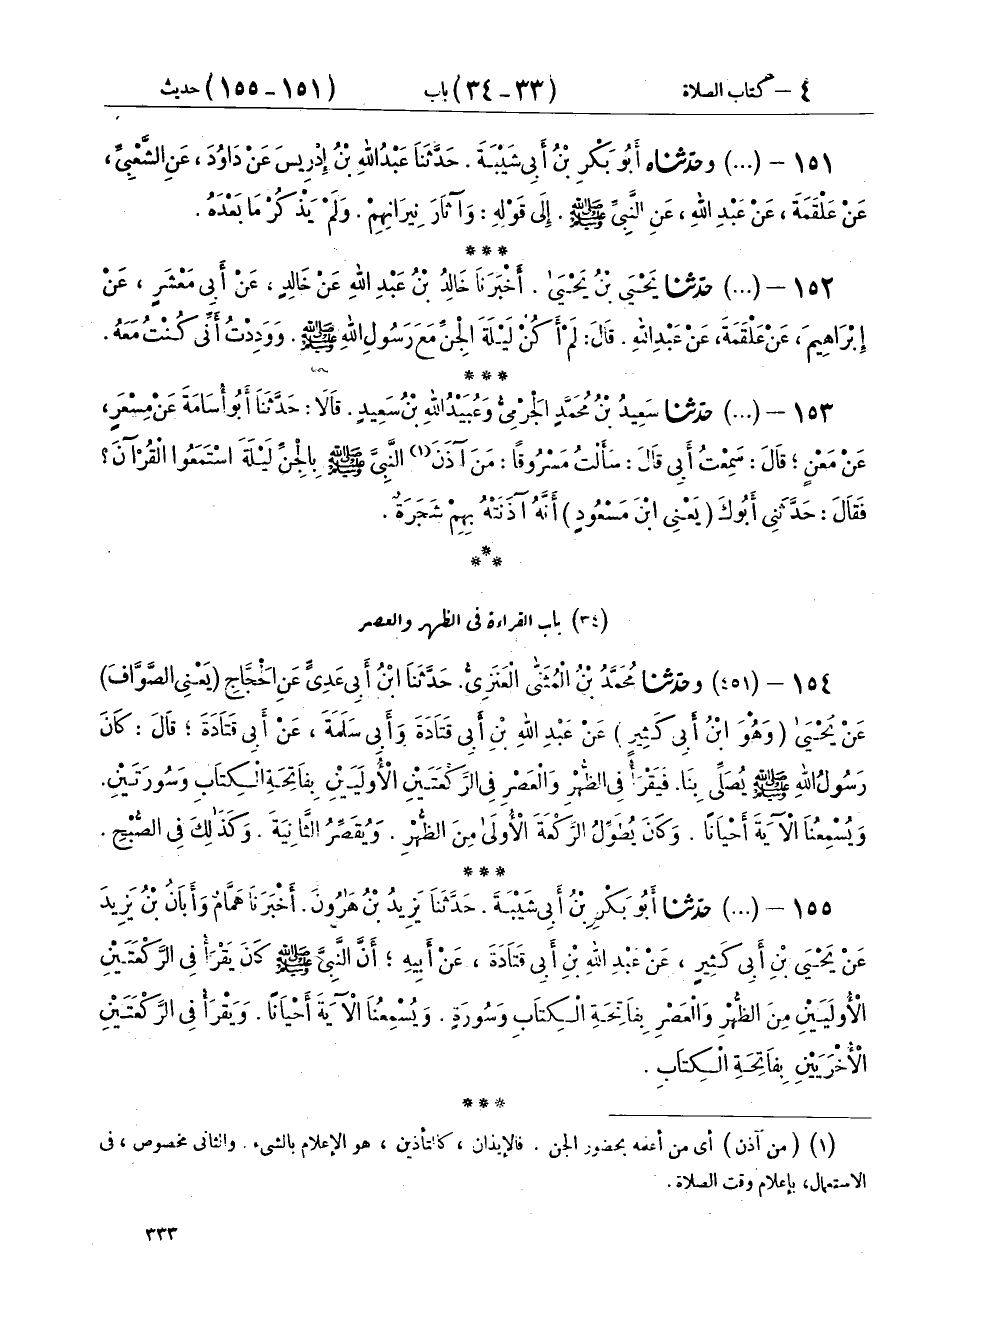 ٤ – كتاب الصلاة (٣٣ – ٣٤) باب (١٥١ – ١٥٥) حديث
١٥١ – (...) وحَدَّثَنَاه أَبُو بَكْرِ بْنُ أَبِي شَيْبَةَ . حَدَّثَنَا عَبْدُ اللهِ بْنُ إِدْرِيسَ عَنْ دَاوُدَ ، عَنِ الشَّعْبِيِّ ،
عَنْ عَلْقَمَةَ ، عَنْ عَبْدِ اللهِ ، عَنِ النَّبِيِّ ﷺ . إِلَى قَوْلِهِ : وَآثَارَ نِيرَانِهِمْ . وَلَمْ يَذْكُرْ مَا بَعْدَهُ .
***
١٥٢ – (...) حَدَّثَنَا يَحْيَى بْنُ يَحْيَىٰ . أَخْبَرَنَا خَالِدُ بْنُ عَبْدِ اللهِ عَنْ خَالِدٍ ، عَنْ أَبِي مَعْشَرٍ ، عَنْ
إِبْرَاهِيمَ ، عَنْ عَلْقَمَةَ ، عَنْ عَبْدِ اللهِ . قَالَ : لَمْ أَكُنْ لَيْلَةَ الْجِنِّ مَعَ رَسُولِ اللهِ ﷺ . وَوَدِدْتُ أَنِّي كُنْتُ مَعَهُ .
***
١٥٣ – (...) حَدَّثَنَا سَعِيدُ بْنُ مُحَمَّدٍ الْجَرْمِيُّ وَعُبَيْدُ اللهِ بْنُ سَعِيدٍ . قَالَا : حَدَّثَنَا أَبُو أُسَامَةَ عَنْ مِسْعَرٍ ،
عَنْ مَعْنٍ ؛ قَالَ : سَمِعْتُ أَبِي قَالَ : سَأَلْتُ مَسْرُوقًا : مَنْ آذَنَ (١) النَّبِيَّ ﷺ بِالْجِنِّ لَيْلَةَ اسْتَمَعُوا الْقُرْآنَ ؟
فَقَالَ : حَدَّثَنِي أَبُوكَ ( يَعْنِي ابْنَ مَسْعُودٍ ) أَنَّهُ آذَنَتْهُ بِهِمْ شَجَرَةٌ .
***
(٣٤) باب القراءة في الظهر والعصر
١٥٤ – (٤٥١) وحَدَّثَنَا مُحَمَّدُ بْنُ الْمُثَنَّى الْعَنَزِيُّ . حَدَّثَنَا ابْنُ أَبِي عَدِيٍّ عَنِ الْحَجَّاجِ (يَعْنِي الصَّوَّافَ)
عَنْ يَحْيَىٰ ( وَهُوَ ابْنُ أَبِي كَثِيرٍ ) عَنْ عَبْدِ اللهِ بْنِ أَبِي قَتَادَةَ وَأَبِي سَلَمَةَ ، عَنْ أَبِي قَتَادَةَ ؛ قَالَ : كَانَ
رَسُولُ اللهِ ﷺ يُصَلِّي بِنَا . فَيَقْرَأُ فِي الظُّهْرِ وَالْعَصْرِ فِي الرَّكْعَتَيْنِ الْأُولَيَيْنِ بِفَاتِحَةِ الْكِتَابِ وَسُورَتَيْنِ .
وَيُسْمِعُنَا الْآيَةَ أَحْيَانًا . وَكَانَ يُطَوِّلُ الرَّكْعَةَ الْأُولَىٰ مِنَ الظُّهْرِ . وَيُقَصِّرُ الثَّانِيَةَ . وَكَذَٰلِكَ فِي الصُّبْحِ .
***
١٥٥ – (...) حَدَّثَنَا أَبُو بَكْرِ بْنُ أَبِي شَيْبَةَ . حَدَّثَنَا يَزِيدُ بْنُ هَٰرُونَ . أَخْبَرَنَا هَمَّامٌ وَأَبَانُ بْنُ يَزِيدَ
عَنْ يَحْيَى بْنِ أَبِي كَثِيرٍ ، عَنْ عَبْدِ اللهِ بْنِ أَبِي قَتَادَةَ ، عَنْ أَبِيهِ ؛ أَنَّ النَّبِيَّ ﷺ كَانَ يَقْرَأُ فِي الرَّكْعَتَيْنِ
الْأُولَيَيْنِ مِنَ الظُّهْرِ وَالْعَصْرِ بِفَاتِحَةِ الْكِتَابِ وَسُورَةٍ . وَيُسْمِعُنَا الْآيَةَ أَحْيَانًا . وَيَقْرَأُ فِي الرَّكْعَتَيْنِ
الْأُخْرَيَيْنِ بِفَاتِحَةِ الْكِتَابِ .
***
(١) ( من آذن ) أي من أعلمه بحضور الجن . فالإيذان ، كالتأذين ، هو الإعلام بالشيء . والثاني مخصوص ، في
الاستعمال ، بإعلام وقت الصلاة .
٣٣٣